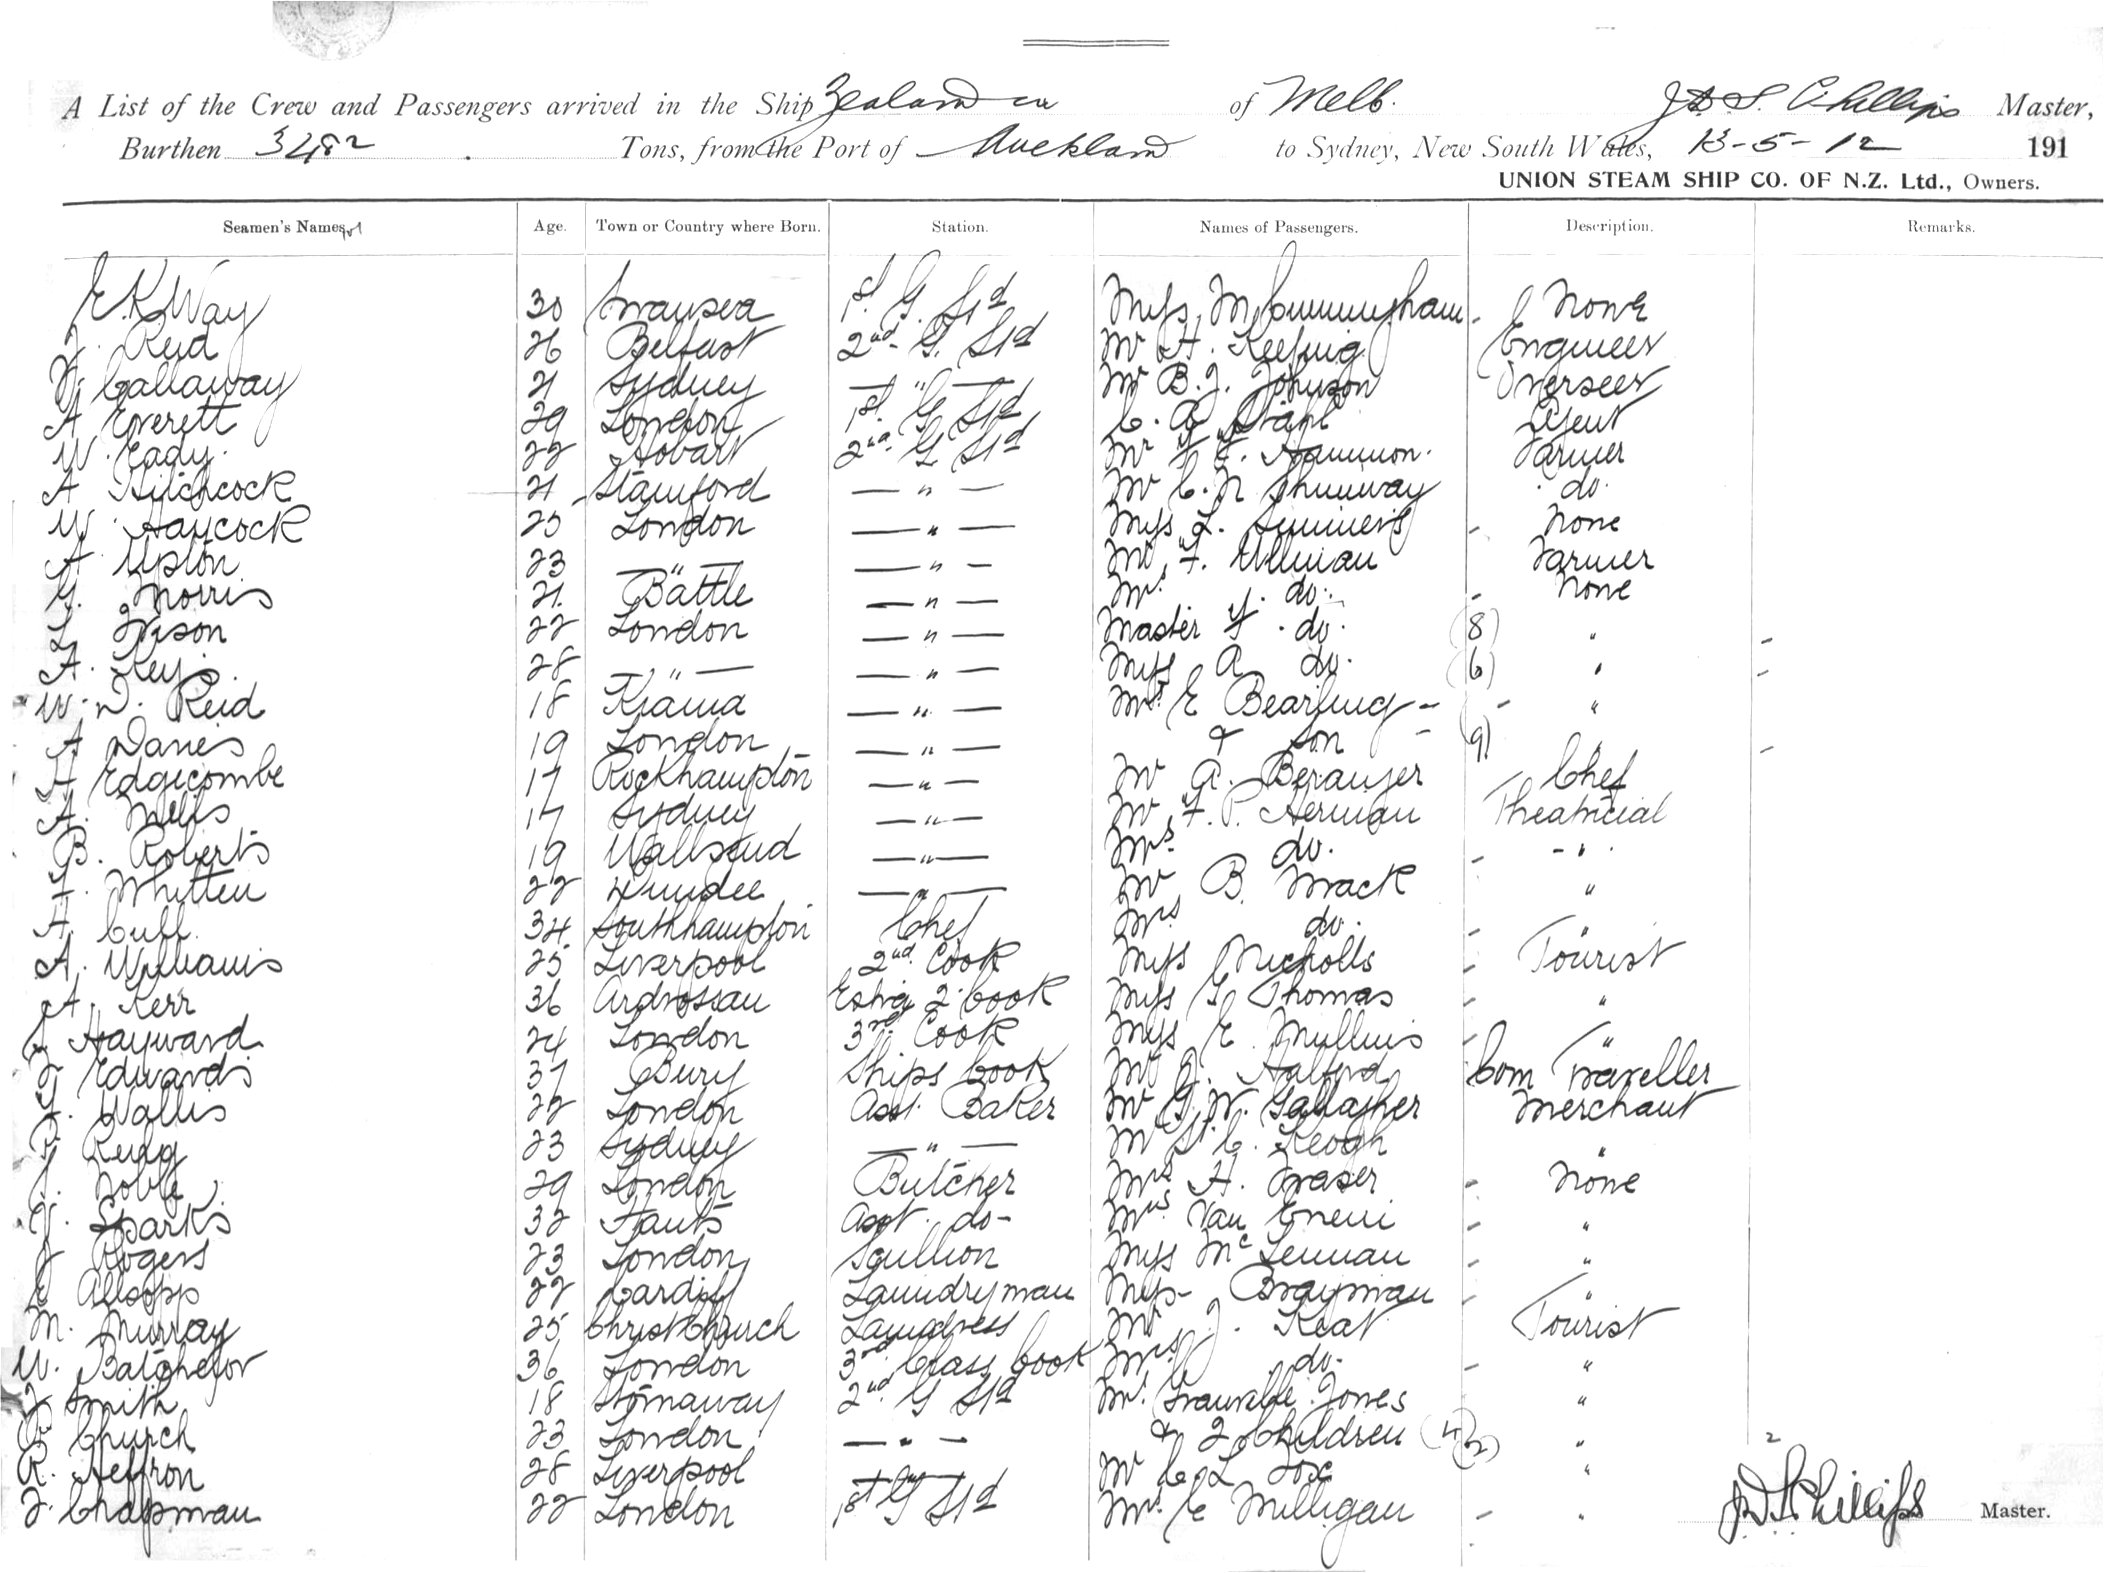 A List of the Crew and Passengers arrived in the Ship Zealandia of Melb. J. D. S. Phillips Master,
Burthen 3482 Tons, from the Port of Auckland to Sydney, New South Wales, 13-5-12 191
UNION STEAM SHIP CO. OF N.Z. Ltd., Owners.
Seamen's Names Age. Town or Country where Born. Station. Names of Passengers. Description. Remarks.
E. K. Way 30 Swansea 1st G. Std Miss M Cunningham - None
J. Reid 26 Belfast 2nd G. Std Mr H. Keesing Engineer
Callaway 21 Sydney — " — Mr B. J. Johnson Overseer
A Everett 29 London 1st G Std C. A. Stahl Agent
W. Eady 22 Hobart 2nd G Std Mr F. F. Hammon. Farmer
A Hitchcock 21 Stamford — " — Mr C. N Shumway do.
W. Haycock 25 London — " — Miss L. Summers - None
A Upton 23 — " — — " — Mr F. Ullman Farmer
G. Morris 21. Battle — " — Mrs do. - None
L. Ivison 22 London — " — Master F. do. (8) " -
A. Key 28 — " — — " — Miss A do. (6) " -
W. D. Reid 18 Kiama — " — Mrs E Bearling - - "
A Davies 19 London — " — & Son - (9) -
A Edgecombe 17 Rockhampton — " — Mr A. Beranger Chef
A. Wells 17 Sydney — " — Mr F. P. Herman Theatricial
B. Roberts 19 Wallsend — " — Mrs do. - - " -
F. Whitten 22 Dundee — " — Mr B. Mack "
A. Cull 34 Southhampton Chef Mrs do. - "
A. Williams 25 Liverpool 2nd Cook Miss Nicholls - Tourist
A. Kerr 36 Ardrossan Extra 2 Cook Miss G Thomas - "
Hayward 24 London 3rd Cook Miss E. Mullins - "
Edwards 37 Bury Ships Cook Mr Halford Com Traveller
Wallis 22 London Asst. Baker Mr G. W. Gallagher Merchant
23 Sydney — " — Mr St. C. Keogh "
J. Noble 29 London Butcher Mrs H. Fraser - None
Sparks 32 Hants Asst. do- Mrs Van - "
J Rogers 23 London Scullion Miss McLennan "
Allsopp 22 Cardiff Laundryman Miss Brayman - "
M. Murray 25 Christchurch Laundress Mr J. Keat Tourist
W. Batchelor 36 London 3rd Class Cook Mrs do. - "
J Smith 18 Stornaway 2nd G Std Mr. Granville Jones "
Church 23 London — " — & 2 Children (4) (2) " 2
R. Heffron 28 Liverpool — " — Mr C. L Fox "
J. Chapman 22 London 1st G Std Mrs E Milligan - " J D S Phillips Master.